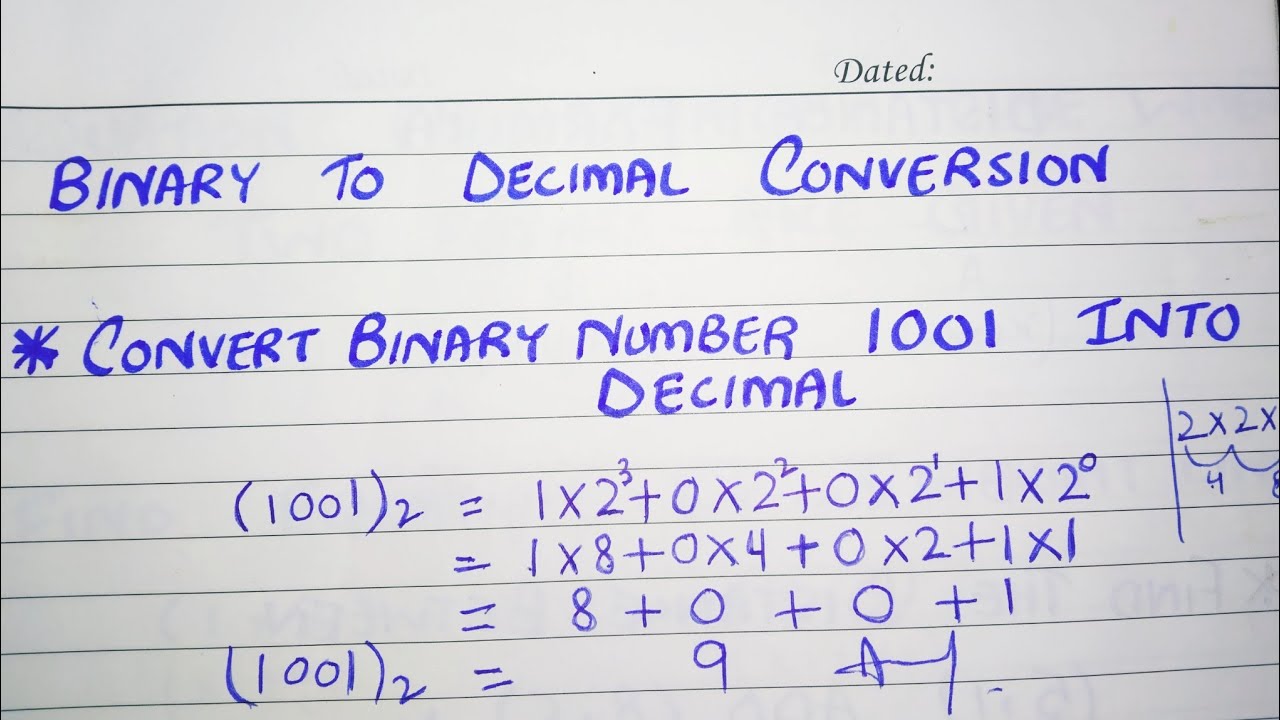 Dated:
BINARY TO DECIMAL CONVERSION
* CONVERT BINARY NUMBER 1001 INTO
DECIMAL
2×2×
4 8
(1001)₂ = 1×2³+0×2²+0×2¹+1×2⁰
= 1×8+0×4+0×2+1×1
= 8+0+0+1
(1001)₂ = 9